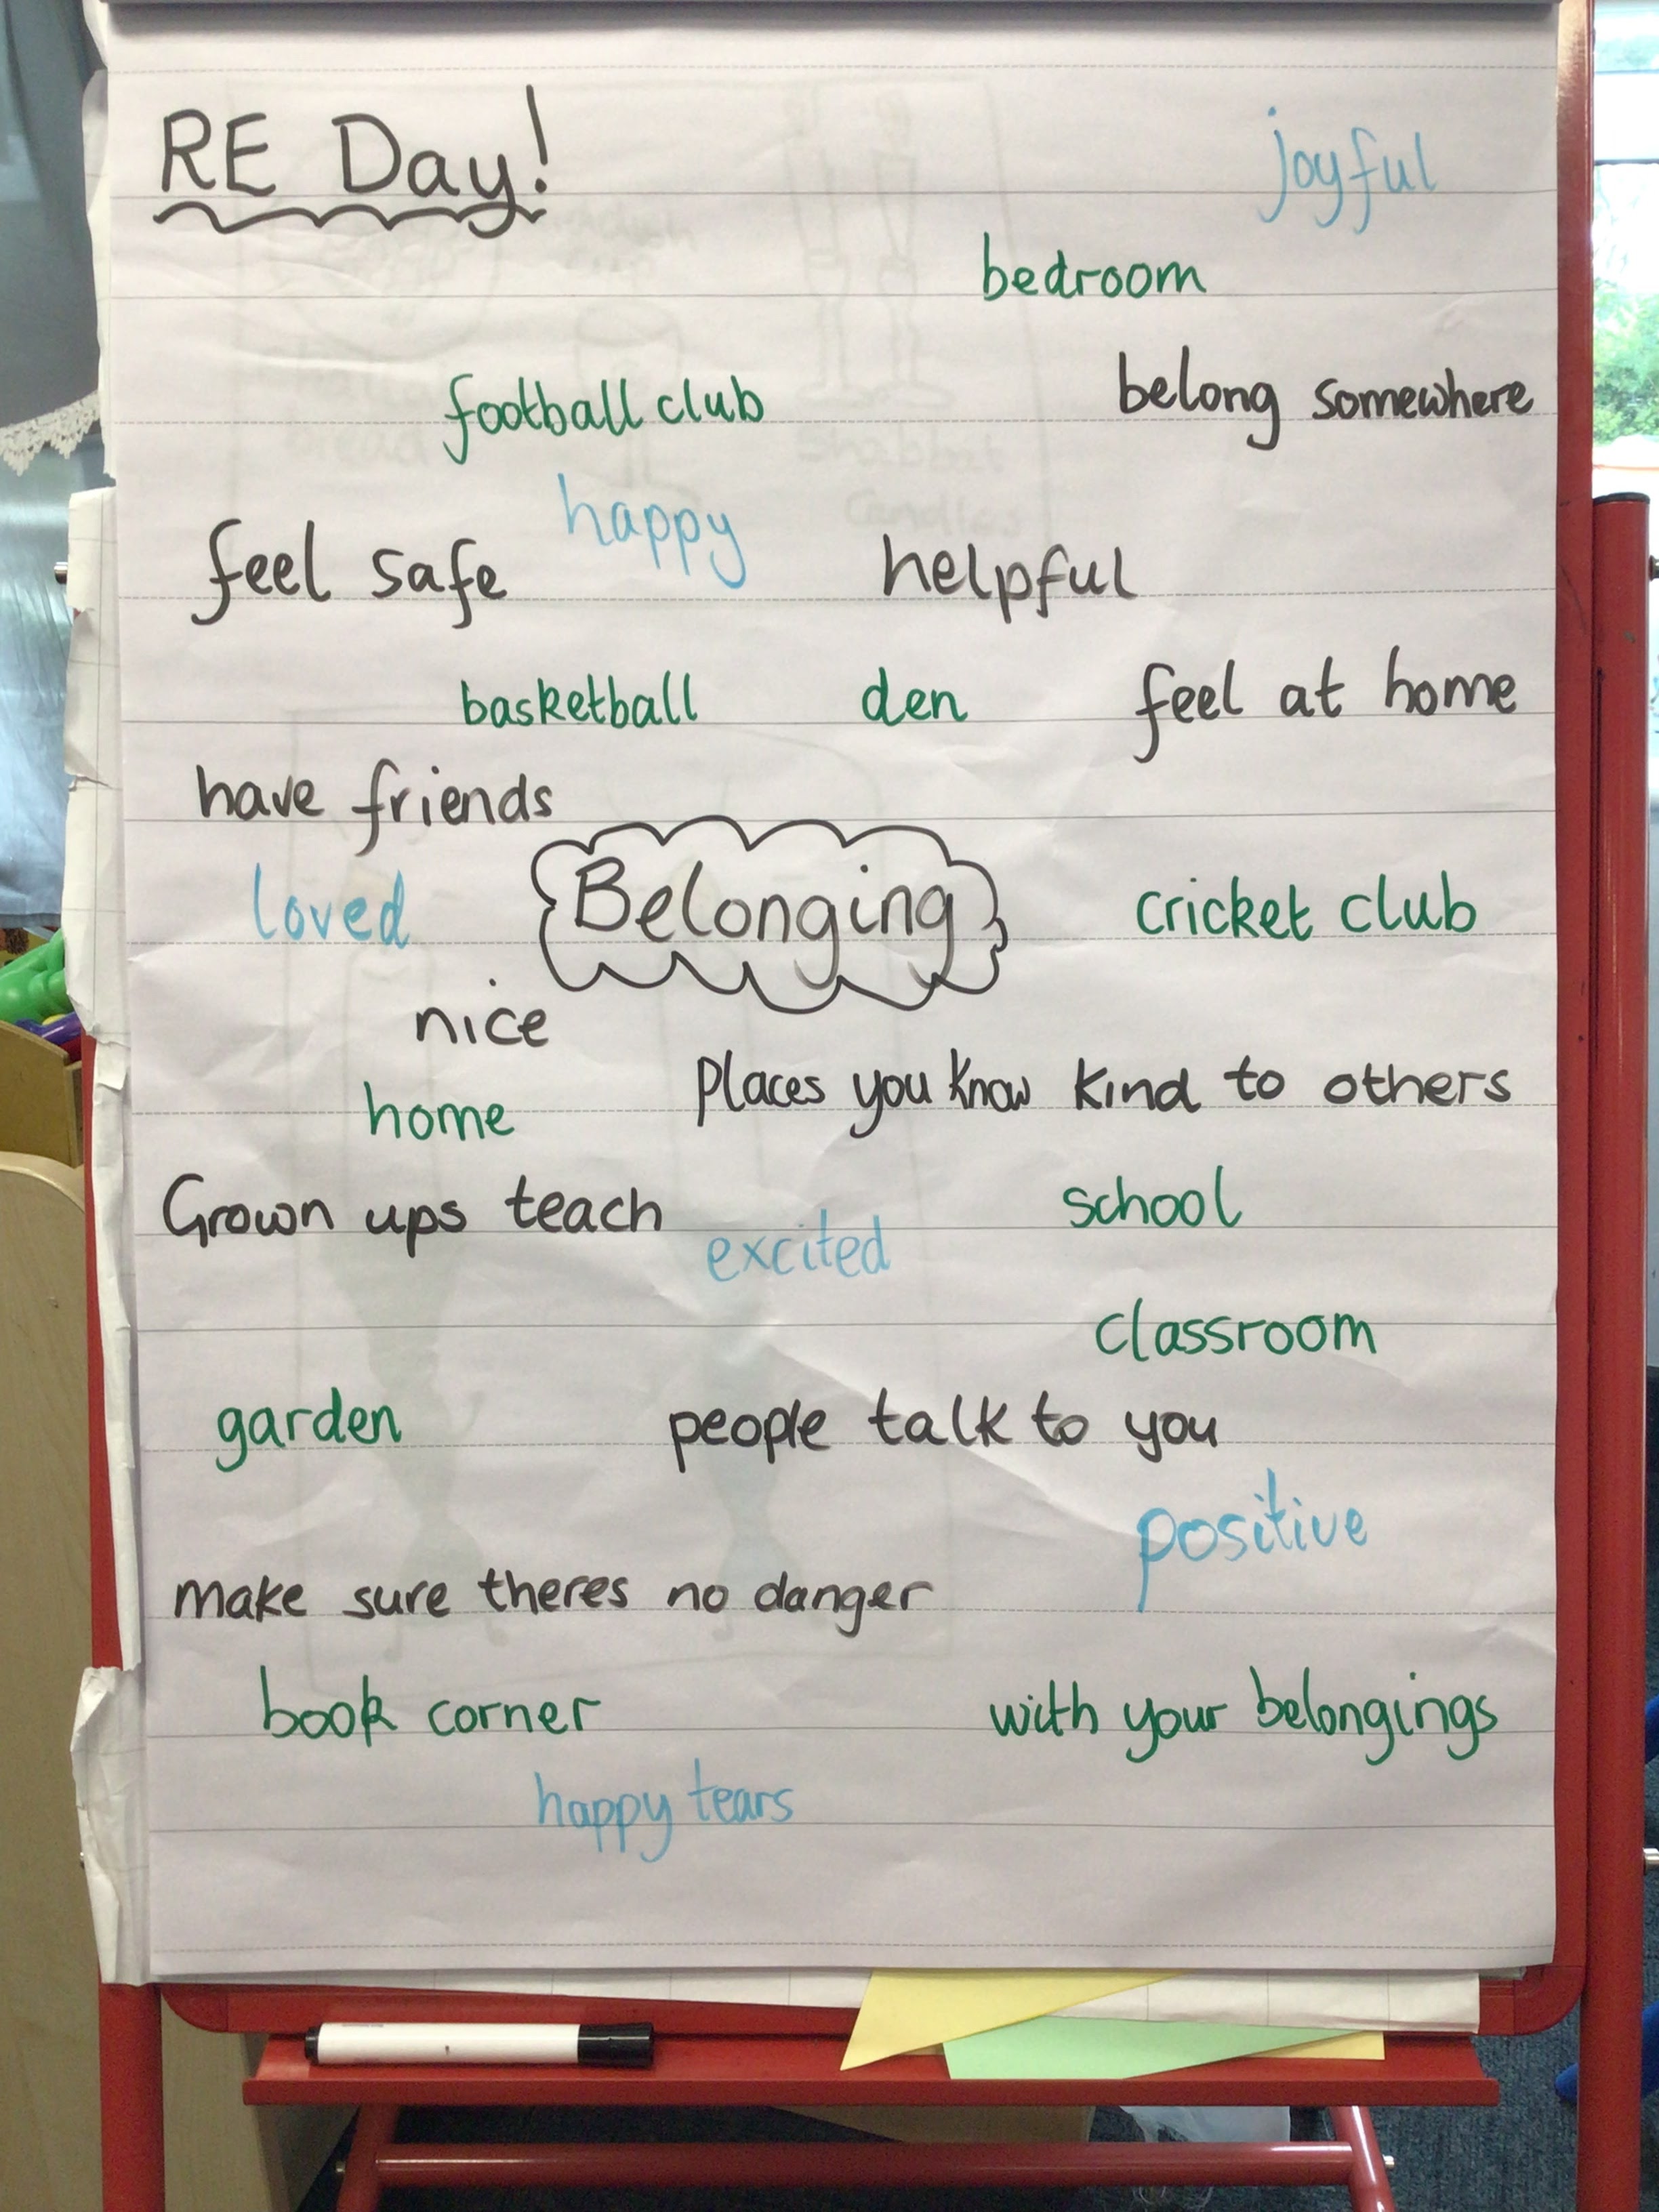 RE Day!
joyful
bedroom
football club
belong somewhere
happy
feel safe
helpful
basketball
den
feel at home
have friends
loved
Belonging
cricket club
nice
Places you know
kind to others
home
Grown ups teach
excited
school
classroom
garden
people talk to you
positive
make sure theres no danger
book corner
with your belongings
happy tears
Shabbat
Candles